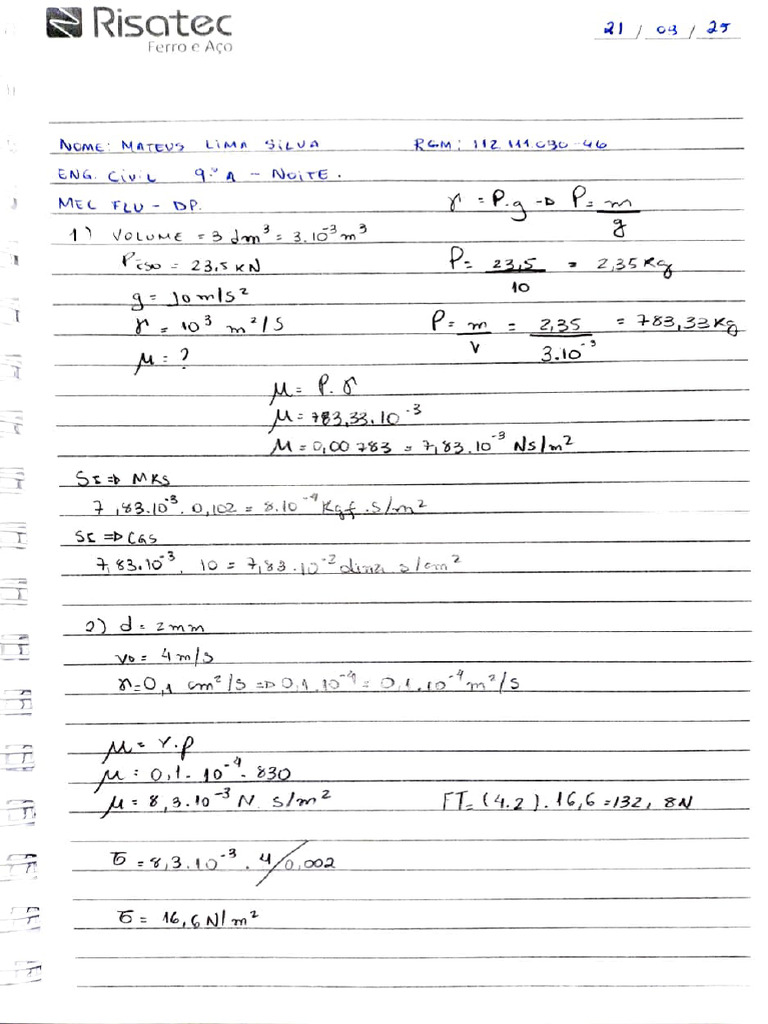 Risatec
Ferro e Aço
21 / 09 / 25
NOME: MATEUS LIMA SILVA RGM: 112.111.030-46
ENG. CIVIL 9.º A - NOITE.
MEC FLU - DP.
γ = P.g → P = m/g
1) VOLUME = 3 dm³ = 3.10⁻³ m³
PESO = 23,5 KN
P = 23,5/10 = 2,35 Kg
g = 10 m/s²
γ = 10³ m²/S
P = m/v = 2,35/3.10⁻³ = 783,33 Kg
μ = ?
μ = P.γ
μ = 783,33.10⁻³
μ = 0,00783 = 7,83.10⁻³ Ns/m²
SI ⇒ MKS
7,83.10⁻³. 0,102 = 8.10⁻⁴ Kgf.s/m²
SI ⇒ CGS
7,83.10⁻³. 10 = 7,83.10⁻² dina s/cm²
2) d = 2mm
v0 = 4 m/s
γ = 0,1 cm²/s ⇒ 0,1.10⁻⁴ = 0,1.10⁻⁴ m²/s
μ = γ.ρ
μ = 0,1. 10⁻⁴. 830
μ = 8,3.10⁻³ N. s/m² FT = (4.2). 16,6 = 132,8N
σ = 8,3.10⁻³. 4/0,002
σ = 16,6 N/m²